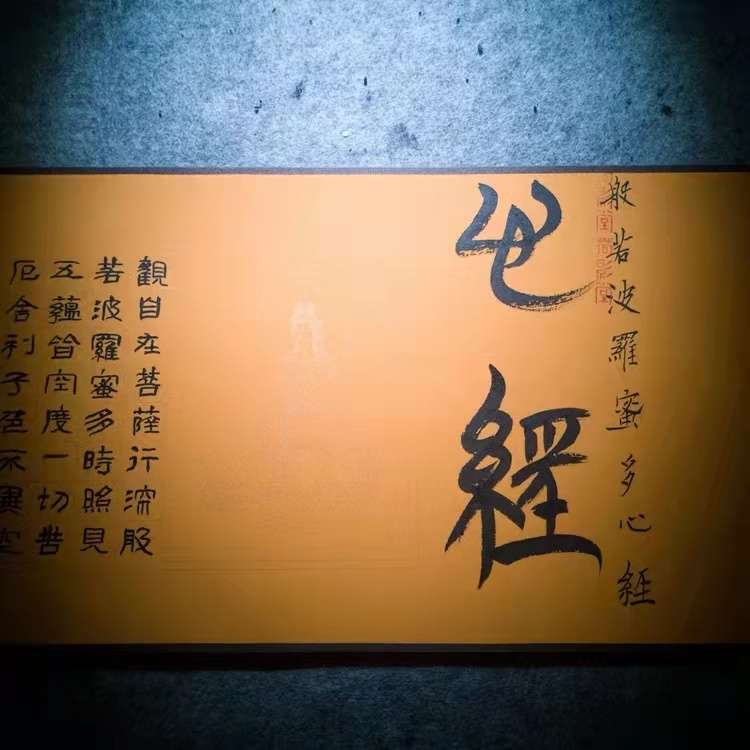 般若波羅蜜多心經
心經
觀自在菩薩行深般
若波羅蜜多時照見
五蘊皆空度一切苦
厄舍利子色不異空